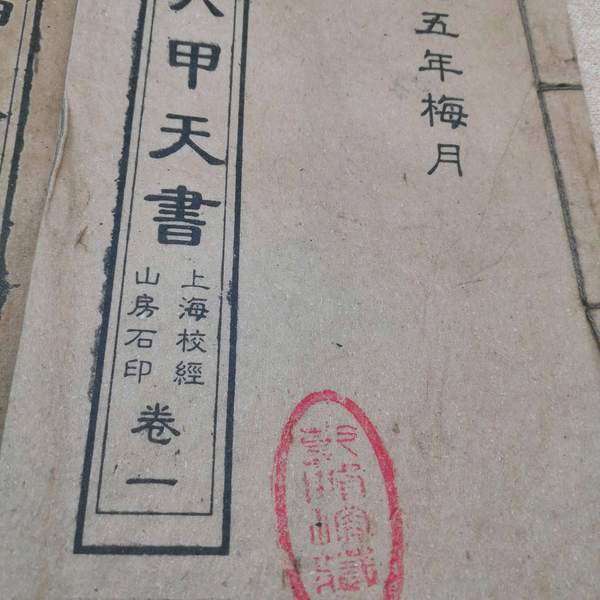 五年梅月
六甲天書
上海校經
山房石印
卷一